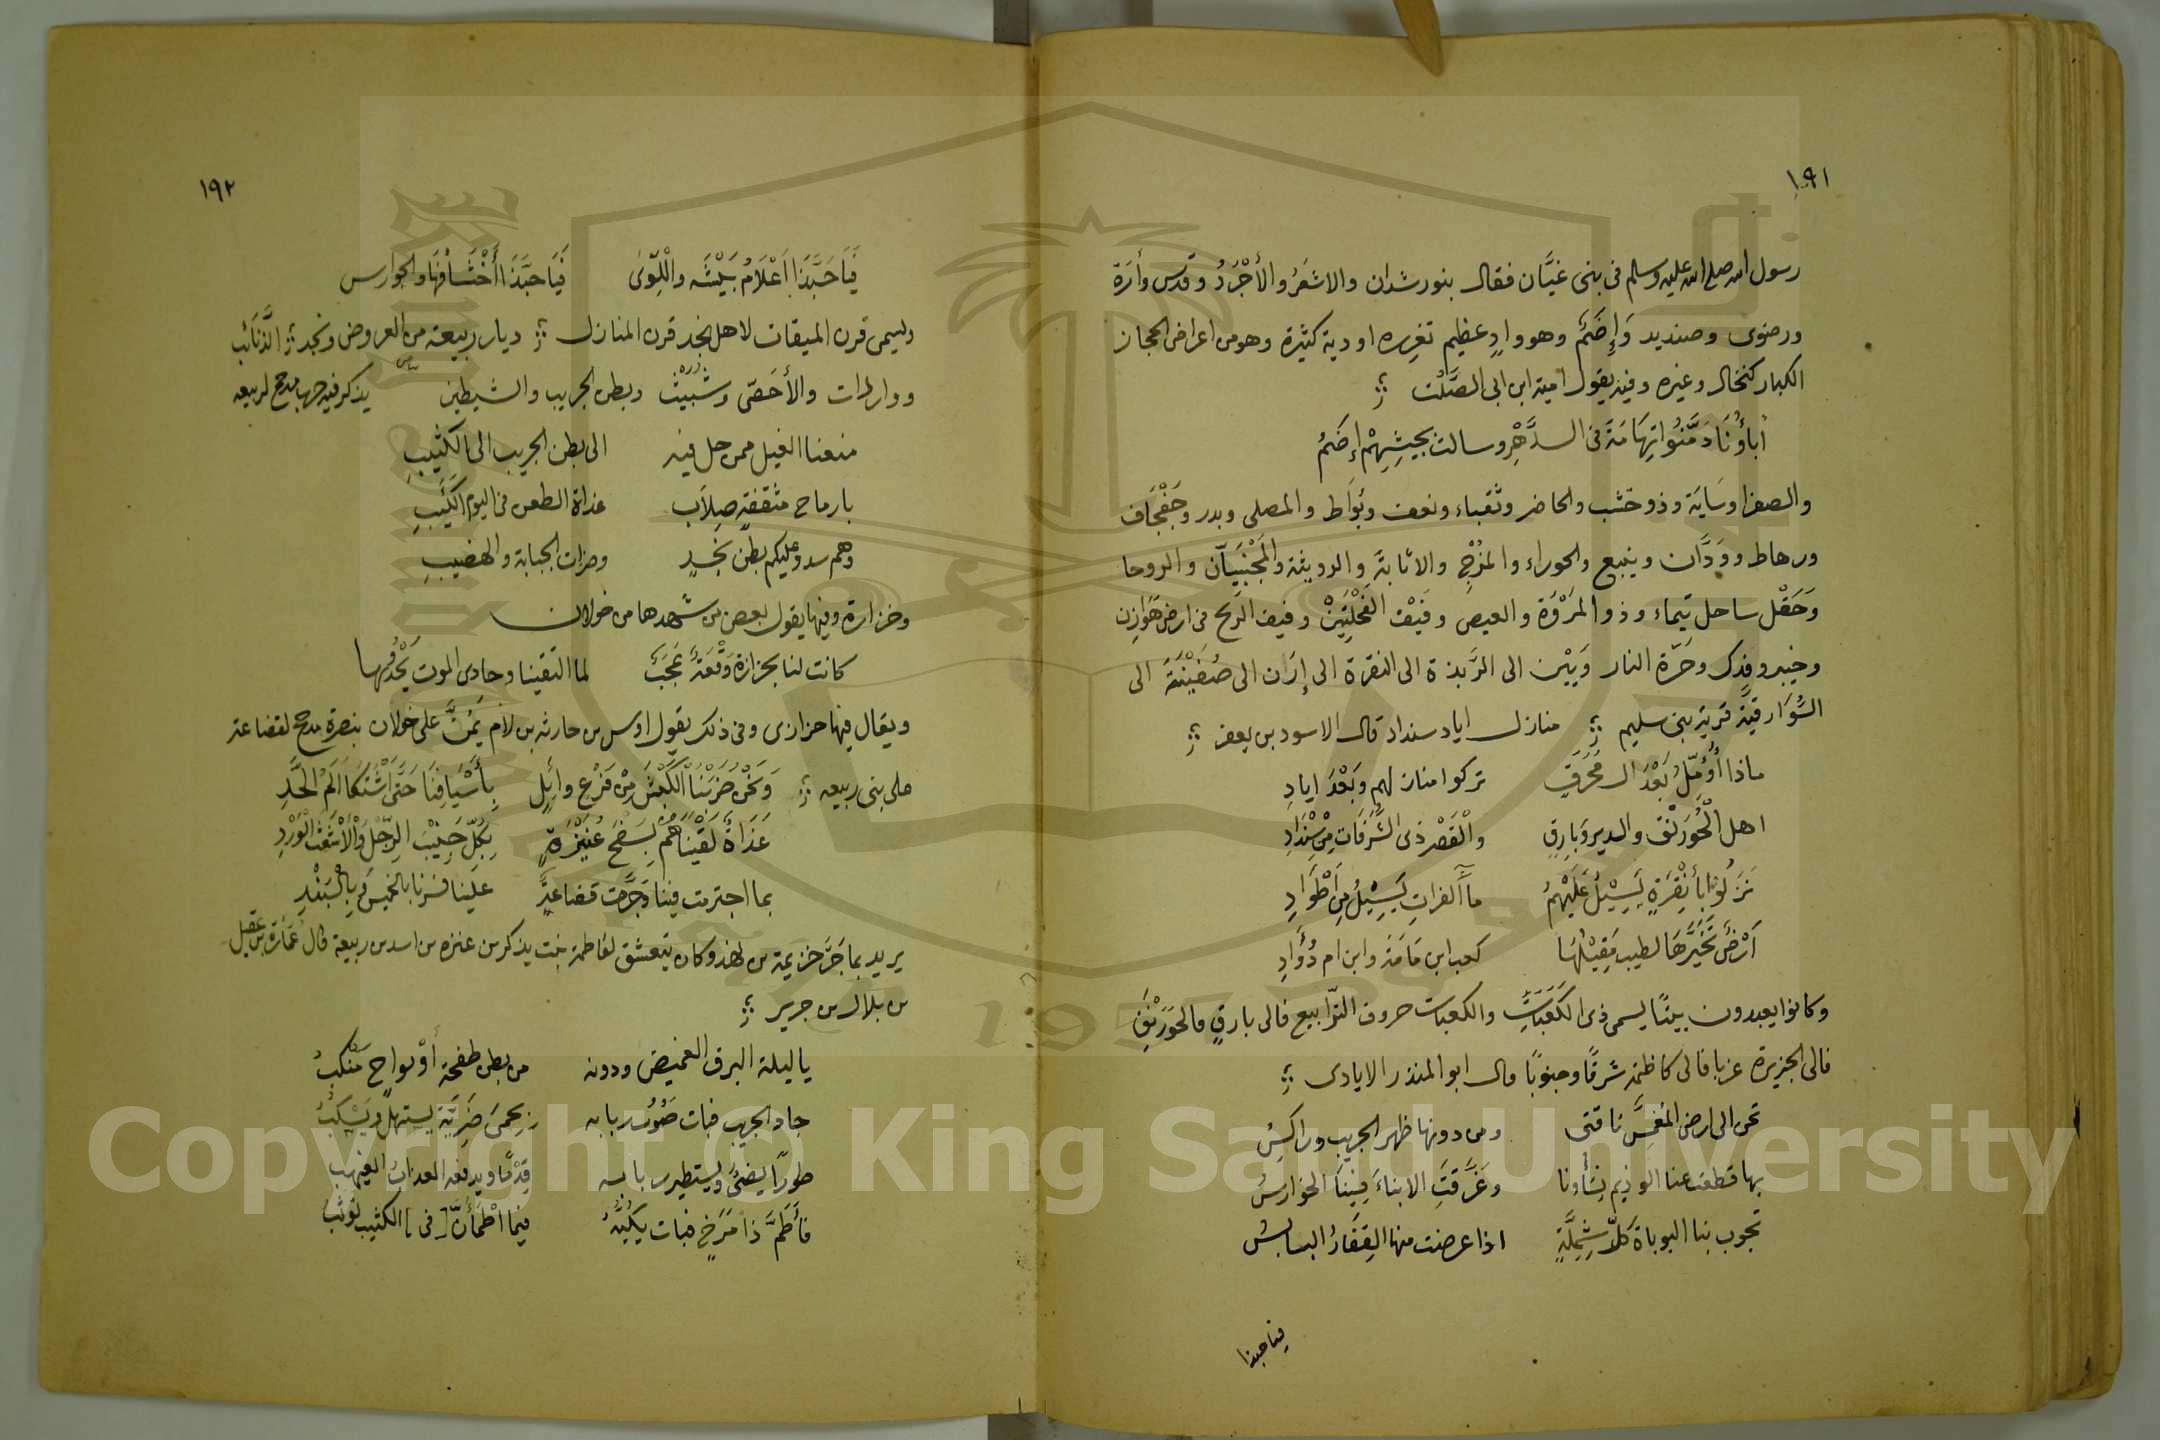 ١٩١
رسول الله صلى الله عليه وسلم فى بنى غيَّان فقال بنو رشدان والاشعَرُ والأجْرَدُ وقدس وأرَة
ورضوى وصنديد وَإِضَمٌ وهو وادٍ عظيم تغزره اودية كثيرة وهو من اعراض الحجاز
الكبار كنخال وغيره وفيه يقول امية ابن ابى الصَّلْت
أباؤُنَا دَمَّنُوا تِهَامَةَ فى الدَّهْرِ وسالت بجيشِهِمْ إِضَمُ
والصفرا وسَايَة وذو خشب والحاضر وثقباء ونعف وبُوَاط والمصلى وبدر وجَفْجَاف
ورهاط ووَدَّان وينبع والحوراء والمرْجِ والاثابَة والرويثة والمَجْنبَيَان والروحا
وَحَقْل ساحل تيماء وذو المَرْوَة والعيص وفَيْف الفَحْلتَيْن وفيف الريح فى ارض هَوَازِن
وخيبر وفدك وحَرّة النار وَبَيْن الى الرَّبذة الى النقرة الى إرَان الى صُفَيْنَة الى
السُّوَارقيَّة قرية بنى سليم منازل اياد سنداد قال الاسود بن يعفر
ماذا أُؤَمِّلُ بَعْدَ ال مُحَرقٍ تركوا منازلهم وبَعْدَ ايادِ
اهل الْخُورَنْق والسدير وبَارِقٍ والْقَصْر ذى الشَّرَفَات مِنْ سِنْدَادِ
نَزَلُوا بأنْقِرَةٍ يَسِيْلُ عَلَيْهِمُ مآ ألفراتِ يَسِيْلُ مِن اَطْوَادِ
اَرْضٌ تَخَيَّرَهَا لطيب مَقِيْلِهَا كعب ابن مَامَة وابن ام دُؤَادِ
وكانوا يعبدون بيتًا يسمى ذى الكَعَبَاتِ والكعبات حروف الترابيع فالى بارقٍ فالخَوَرْنِق
فالى الجزيرة غربا فالى كاظمة شرقًا وجنوبًا قال ابو المنذر الايادى
تحن الى ارض المُغَمَّس ناقتى ومن دونها ظهر الجريب وراكسُ
بها قطعت عنا الوذيم نِسَاؤنا وعَزَّقَتِ الابناءَ فِينَا الخوارسُ
تجوب بنا البوباة كلّ شِمِلَّةٍ اذا عرضت منها القِفَارُ البسابسُ
فيا حبذا
١٩٢
فَيَا حَبَّذَا اَعْلَامُ بَيْشَه والْلِّوَىٰ فَيَا حَبَّذَا أَخْشَافُهَا والجوارس
ويسمى قرن الميقات لاهل نجد قرن المنازل ديار ربيعة من العروض ونجد الذَّنائب
وواردات والأحَصّ وشُبَيْث وبطن الجريب والشيطين يذكر فيه حرب مذحج لربيعه
منعنا الغيل ممن حل فيه الى بطن الجريب الى الكثيبِ
بارماح مثقفةٍ صِلاَبٍ غداة الطعن فى اليوم الكَئيبِ
وهم سدو عليكم بطن نجدٍ وضرات الجبابة والهضيبِ
وخزازة وفيها يقول بعض من شهدها من خولان
كانت لنا بخزازة وَقْعَةٌ عَجَبٌ لما التقينا وحادى الموت يَحْدُيها
ويقال فيها خزازى وفى ذلك يقول اوس بن حارثه بن لأم يَمُنُّ على خولان بنصرة مذحج لقضاعة
على بنى ربيعه وَنَحْنُ ضَرَبْنَا الكَبْشَ مِنْ فَرْعِ وائِلٍ بِأَسْيَافِنَا حَتَّى اشْتَكَا اَلَمْ الحَدِّ
غَدَاةَ لَقْيَناهُمْ بِسَفْحِ عُنَيْزَةٍ بِكُلّ جَنِيْبَ الرِّجْل والأشْعَثَ الْوَرْدِ
بما اجترمت فينا وَجَرَّت قضاعةٍ علينا فسرنا بالخميس وبِالْبَنْدِ
يريد بما جَرَّ خزيمة بن نهد وكان يتعشق لفاطمة بنت يذكر بن عنزه بن اسد بن ربيعة قال عمَارَة بن عقيل
بن بلال بن جرير
يا ليلة البرق الغميض ودونه من بطن طفحة أوْ سواجٍ مَنْكبُ
جاد الجريب فبات صَوْبُ ربابه بحمىَ ضَرِيَّة يستهلّ ويَسْكبُ
طورًا يضىُٔ ويستطير ربابه قِدْمًا ويدفعه العذابُ الغيهبُ
فأطَمَّ ذا مَرَخٍ فبات يَكُبُّهُ فيما اطْمَأنَّ [فى] الكثيب لوثب
Copyright © King Saud University
1957